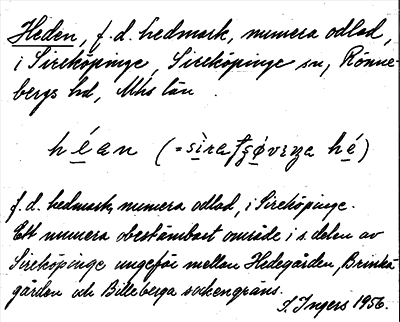 Heden, f.d. hedmark, numera odlad,
i Sireköpinge, Sireköpinge sn, Rönne-
bergs hd, Mhs län
héan (=sìra hé)
f.d. hedmark, numera odlad, i Sireköpinge.
Ett numera obestämbart område i s. delen av
Sireköpinge ungefär mellan Hedegården, Brinka-
gården och Billeberga sockengräns.
I. Ingers 1956.